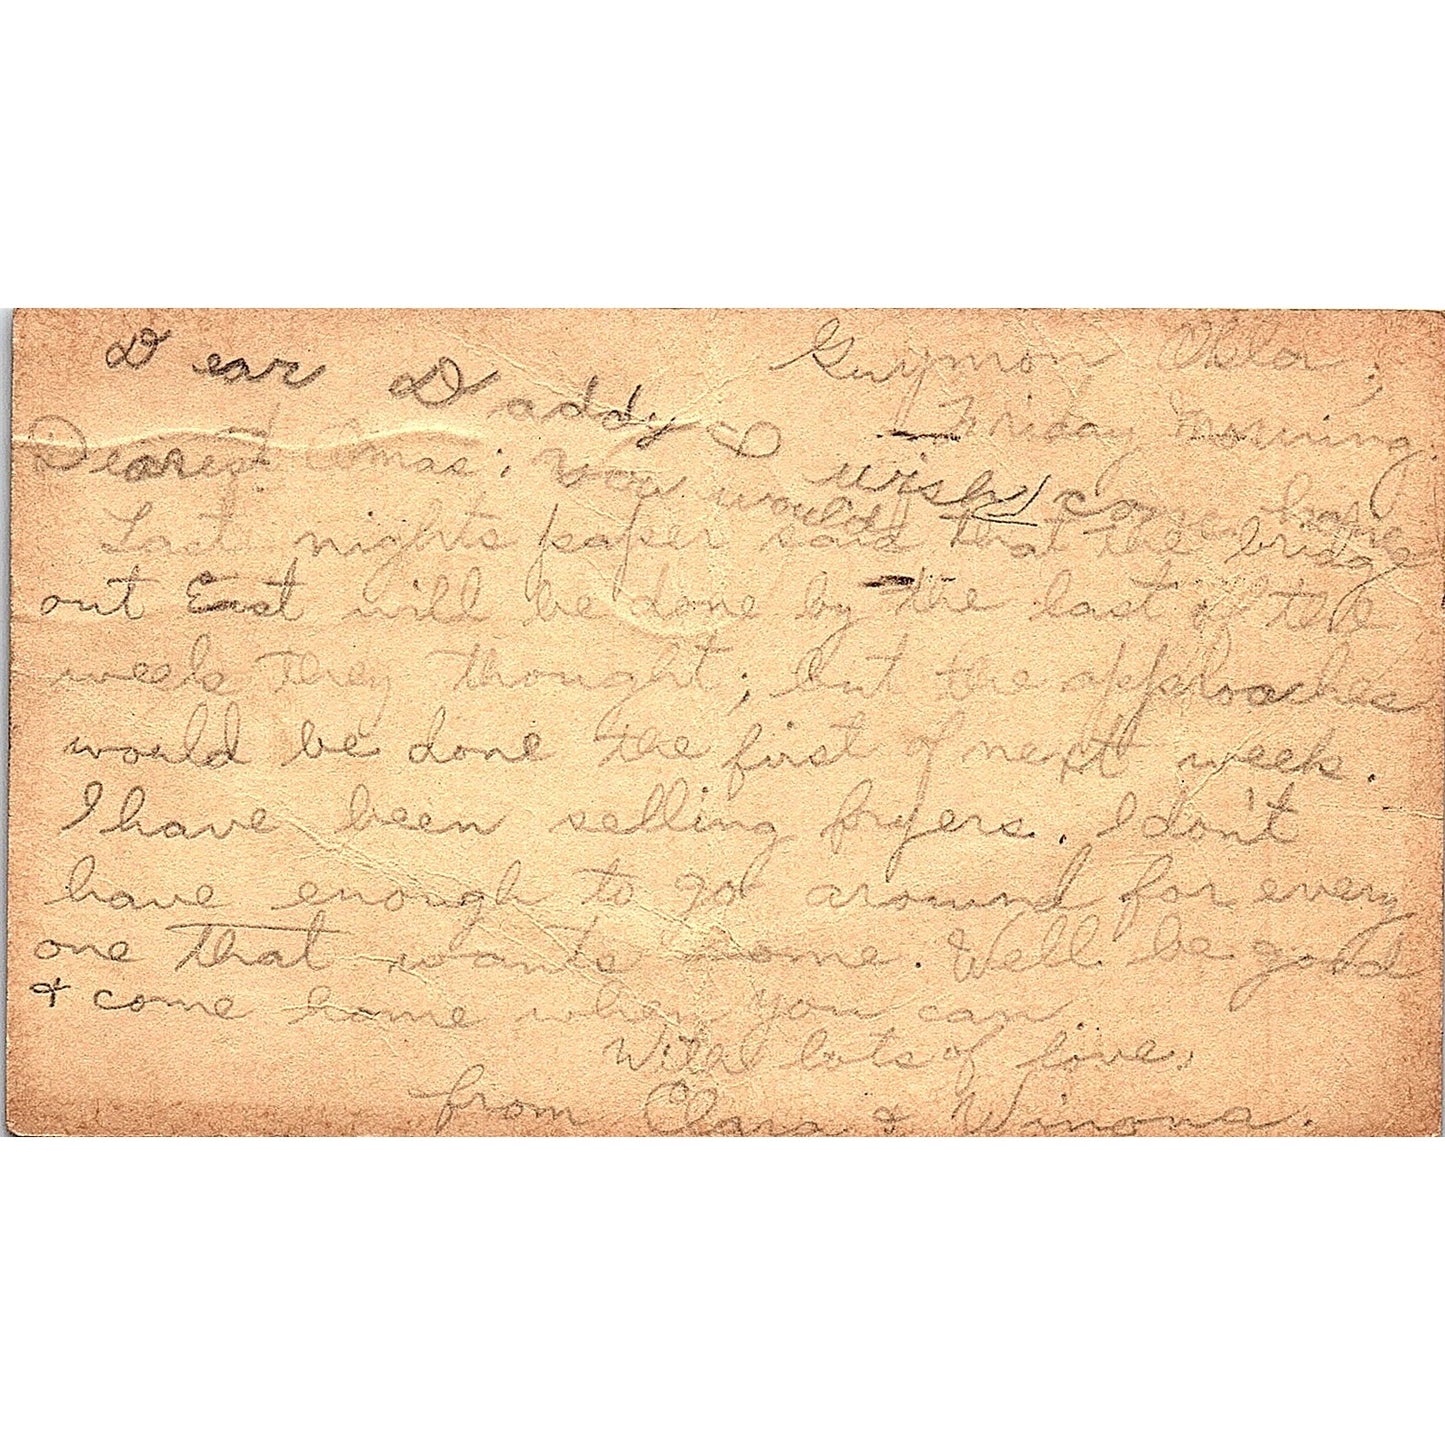 Guymon Okla.,
Friday Morning.
Dear Daddy I wish
you would come home
Dearest Omas:
Last nights paper said that the bridge
out East will be done by the last of the
week they thought, but the approaches
would be done the first of next week.
I have been selling fryers. I don't
have enough to go around for every
one that wants some. Well be good
& come home when you can
With lots of love,
from Clara & Winona.